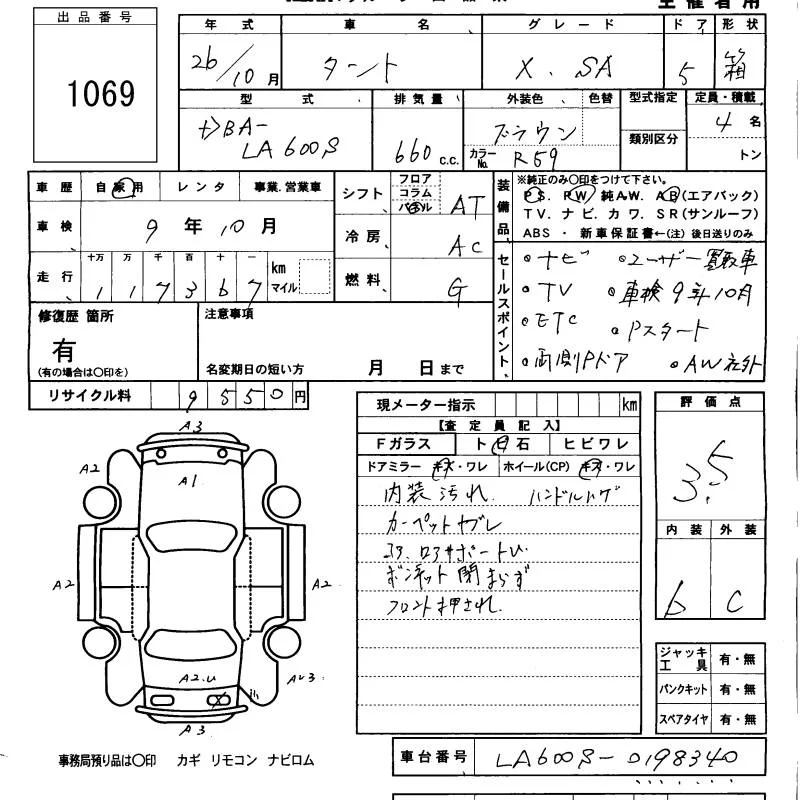 出品番号
1069
年式 車名 グレード ドア 形状
26/10月 タント X. SA 5 箱
型式 排気量 外装色 色替 型式指定 定員・積載
DBA-
LA600S 660 c.c. ブラウン 4名
カラーNo. R59 類別区分 トン
車歴 自家用 レンタ 事業.営業車
車検 9年10月
走行 十万 万 千 百 十 一 km マイル
1 1 7 3 6 7
シフト フロア コラム パネル AT
冷房 AC
燃料 G
装備品
※純正のみ〇印をつけて下さい。
P.S. PW 純A.W. AB(エアバック)
TV. ナビ. カワ. SR(サンルーフ)
ABS ・ 新車保証書←(注) 後日送りのみ
セールスポイント
・ナビ ・ユーザー買取車
・TV ・車検9年10月
・ETC ・Pスタート
・両側Pドア ・AW社外
修復歴 箇所
有
(有の場合は〇印を)
注意事項
名変期日の短い方 月 日まで
リサイクル料 9550円
現メーター指示 km
【査定員記入】
Fガラス ト 石 ヒビワレ
ドアミラー キズ・ワレ ホイール(CP) キズ・ワレ
内装汚れ ハンドルハゲ
カーペットヤブレ
ボンネット閉まらず
フロント押され
評価点
3.5
内装 外装
b C
ジャッキ 工具 有・無
パンクキット 有・無
スペアタイヤ 有・無
A3
A2
A1
A2
A2
A2.U
A3
事務局預り品は〇印 カギ リモコン ナビロム
車台番号 LA600S-0198340